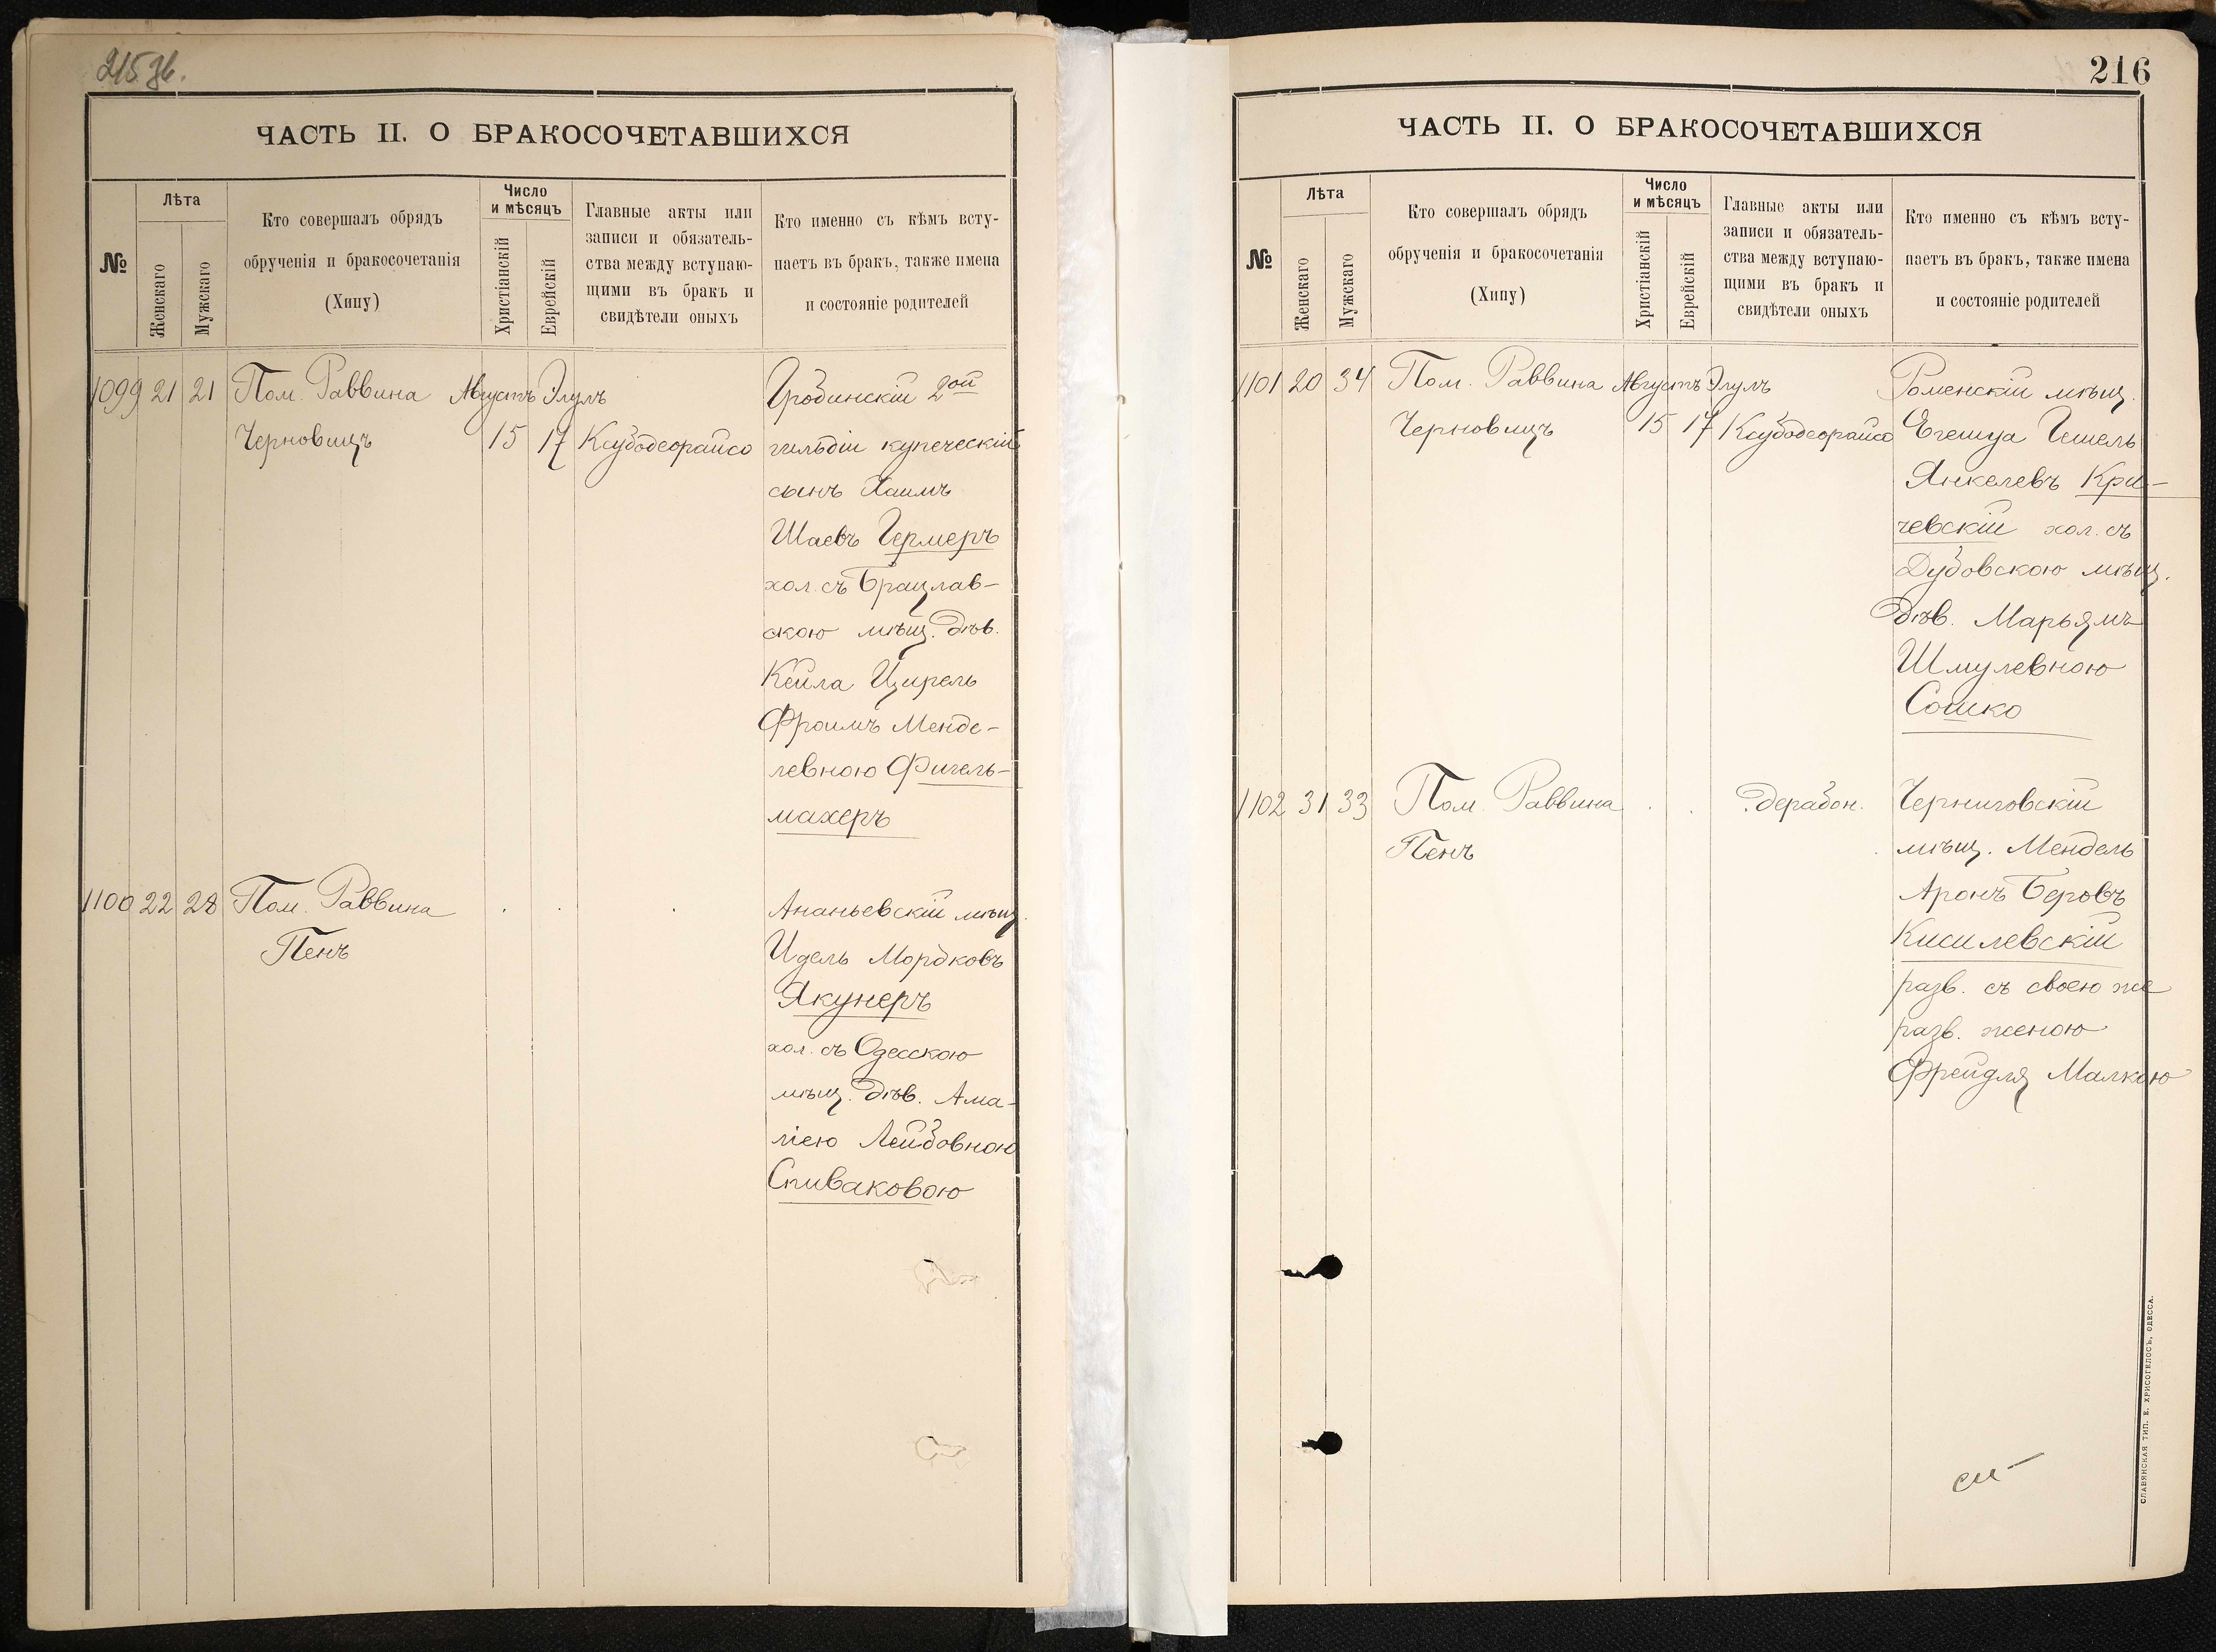 215 зв.
ЧАСТЬ II. О БРАКОСОЧЕТАВШИХСЯ
№
Лѣта
Женскаго
Мужскаго
Кто совершалъ обрядъ
обрученія и бракосочетанія
(Хипу)
Число
и мѣсяцъ
Христіанскій
Еврейскій
Главные акты или
записи и обязатель-
ства между вступаю-
щими въ бракъ и
свидѣтели оныхъ
Кто именно съ кѣмъ всту-
паетъ въ бракъ, также имена
и состояніе родителей
1099 21 21 Пом. Раввина Августъ Элулъ Гродинскій 2ой
Черновицъ 15 17 Ксубодеорайсо гильдіи купеческій
сынъ Хаимъ
Шаевъ Гермеръ
хол. съ Брацлав-
скою мѣщ. дѣв.
Кейла Цирель
Фроимъ Менде-
левною Фигель-
махеръ
1100 22 28 Пом. Раввина Ананьевскій мѣщ.
Пенъ Идель Мордковъ
Якунеръ
хол. съ Одесскою
мѣщ. дѣв. Ама-
ліею Лейбовною
Спиваковою
216
ЧАСТЬ II. О БРАКОСОЧЕТАВШИХСЯ
№
Лѣта
Женскаго
Мужскаго
Кто совершалъ обрядъ
обрученія и бракосочетанія
(Хипу)
Число
и мѣсяцъ
Христіанскій
Еврейскій
Главные акты или
записи и обязатель-
ства между вступаю-
щими въ бракъ и
свидѣтели оныхъ
Кто именно съ кѣмъ всту-
паетъ въ бракъ, также имена
и состояніе родителей
1101 20 34 Пом. Раввина Августъ Элулъ Роменскій мѣщ.
Черновицъ 15 17 Ксубодеорайсо Егешуа Гешель
Янкелевъ Кри-
чевскій хол. съ
Дубовскою мѣщ.
дѣв. Марьямъ
Шмулевною
Сошко
1102 31 33 Пом. Раввина . . дерабон. Черниговскій
Пенъ мѣщ. Мендель
Аронъ Беровъ
Кисилевскій
разв. съ своею же
разв. женою
Фрейдля Малкою
СЛАВЯНСКАЯ ТИП. Е. ХРИСОГЕЛОСЪ, ОДЕССА.